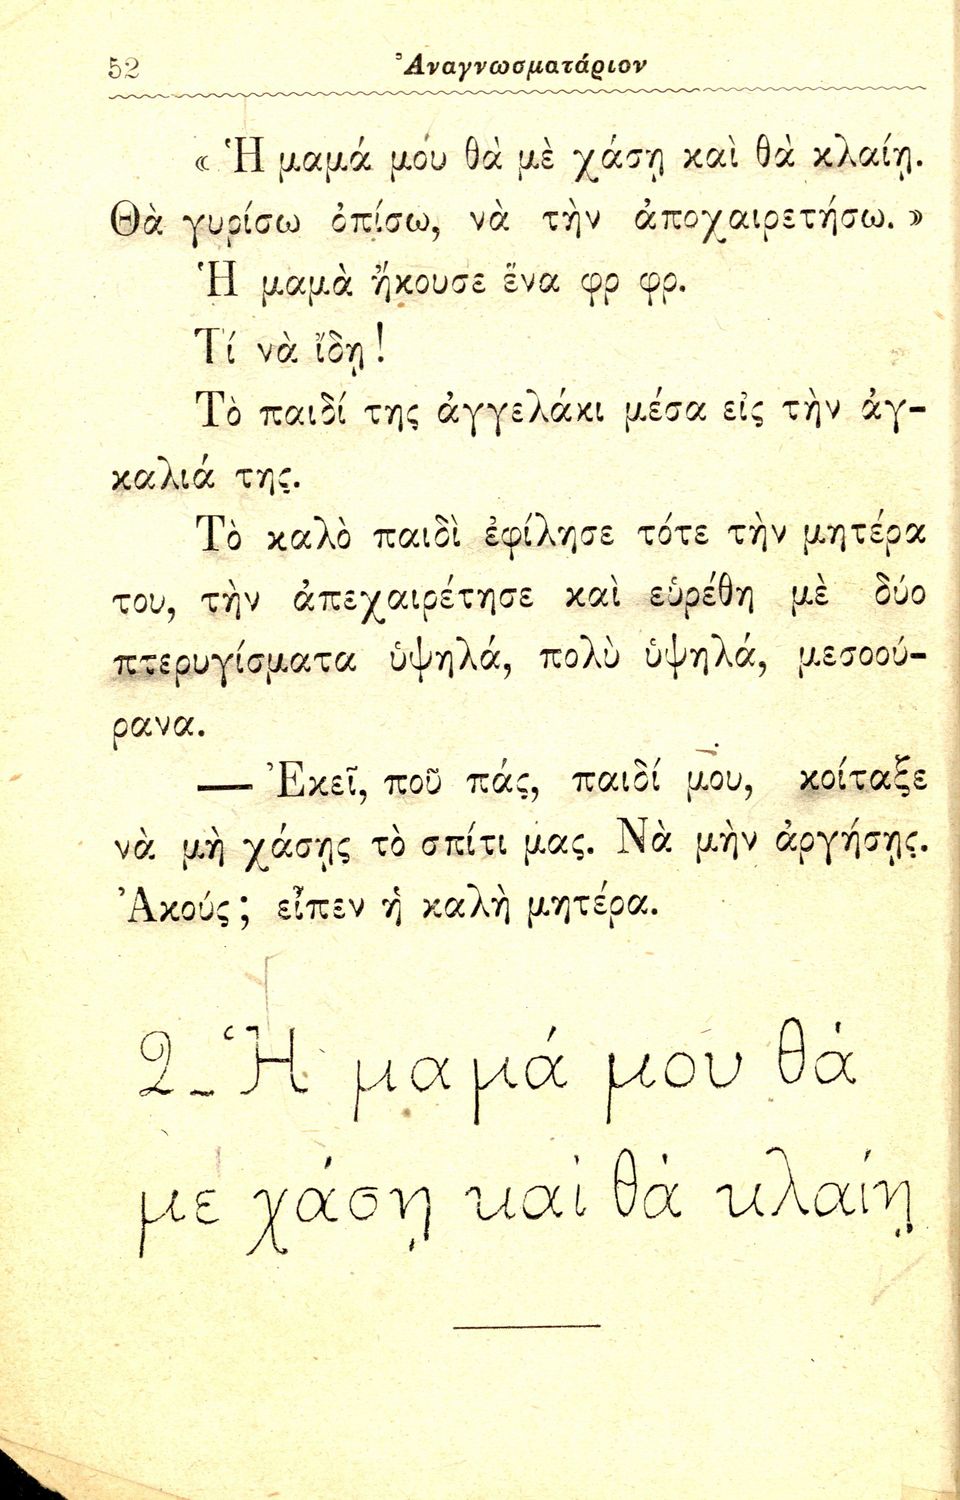 52 Ἀναγνωσματάριον
« Ἡ μαμά μου θὰ μὲ χάσῃ καὶ θὰ κλαίῃ.
Θὰ γυρίσω ὀπίσω, νὰ τὴν ἀποχαιρετήσω. »
Ἡ μαμὰ ἤκουσε ἕνα φρ φρ.
Τί νὰ ἴδῃ !
Τὸ παιδί της ἀγγελάκι μέσα εἰς τὴν ἀγ-
καλιά της.
Τὸ καλὸ παιδὶ ἐφίλησε τότε τὴν μητέρα
του, τὴν ἀπεχαιρέτησε καὶ εὑρέθη μὲ δύο
πτερυγίσματα ὑψηλά, πολὺ ὑψηλά, μεσοού-
ρανα.
— Ἐκεῖ, ποῦ πάς, παιδί μου, κοίταξε
νὰ μὴ χάσῃς τὸ σπίτι μας. Νὰ μὴν ἀργήσῃς.
Ἀκούς ; εἶπεν ἡ καλὴ μητέρα.
2_ Ἡ μαμά μου θὰ
με χάσῃ καὶ θὰ κλαίῃ